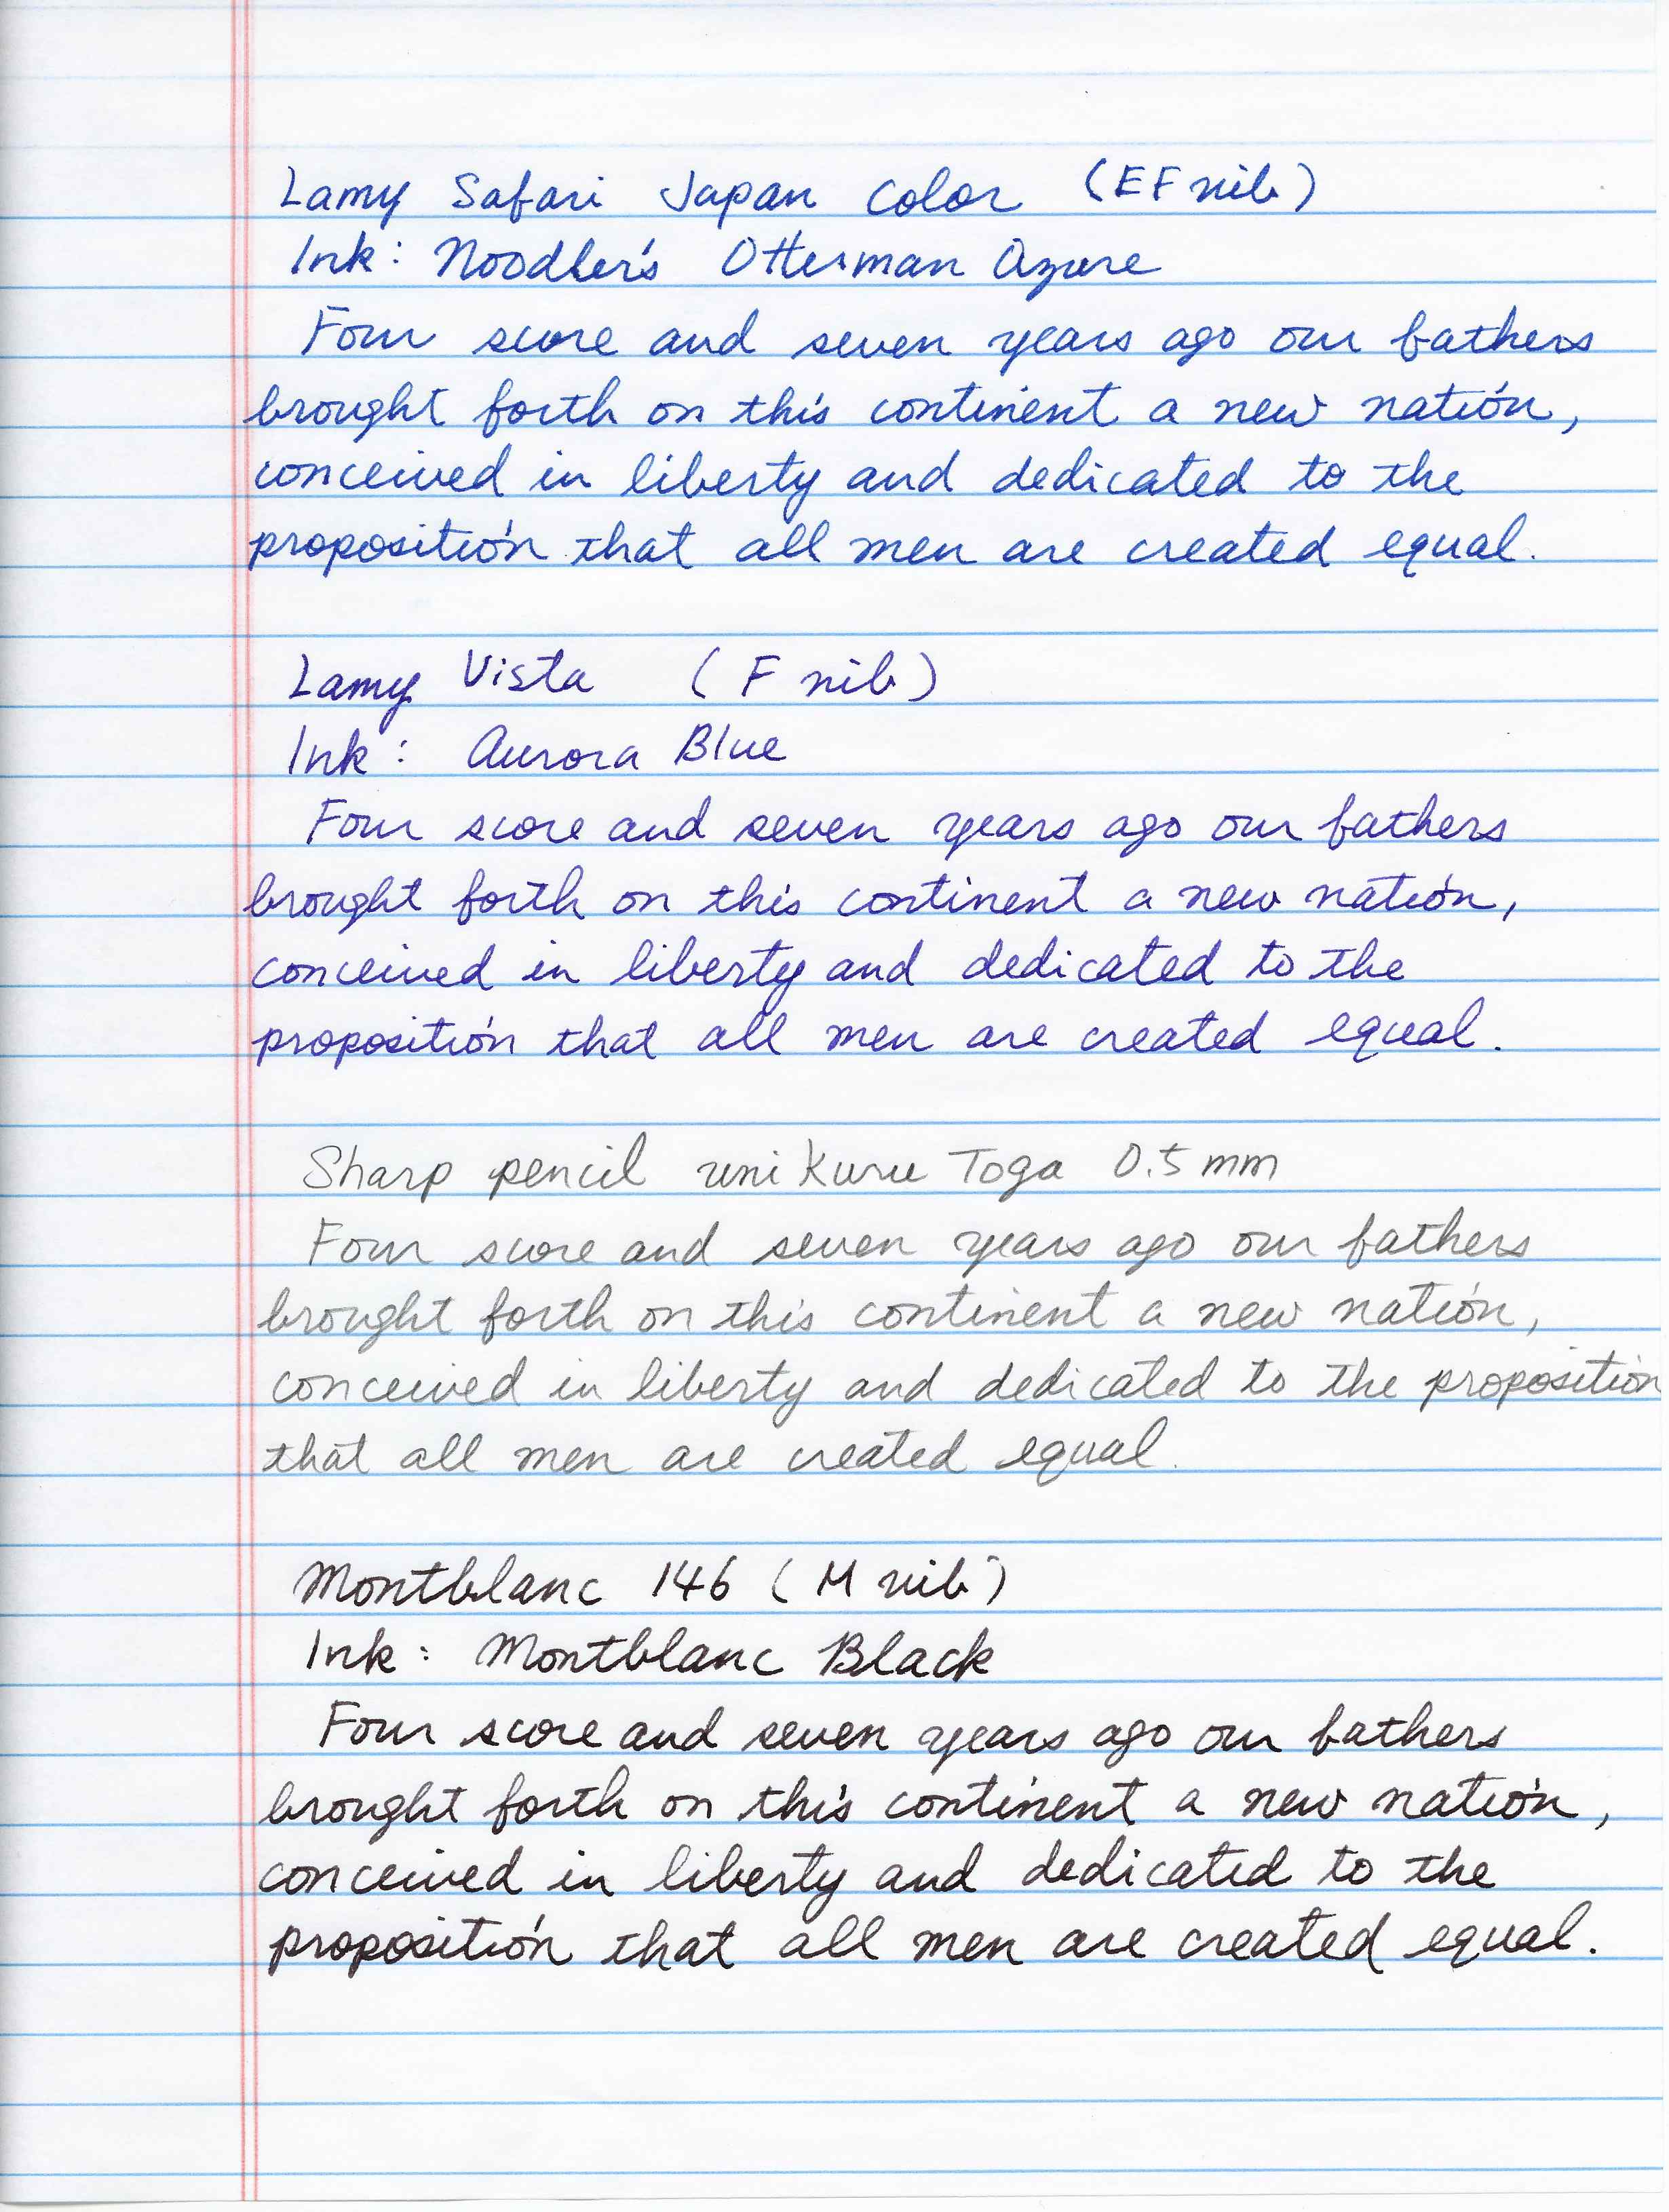 Lamy Safari Japan Color (EF nib)
Ink: Noodler's Otterman Azure
Four score and seven years ago our fathers
brought forth on this continent a new nation,
conceived in liberty and dedicated to the
proposition that all men are created equal.
Lamy Vista (F nib)
Ink: Aurora Blue
Four score and seven years ago our fathers
brought forth on this continent a new nation,
conceived in liberty and dedicated to the
proposition that all men are created equal.
Sharp pencil uni Kuru Toga 0.5 mm
Four score and seven years ago our fathers
brought forth on this continent a new nation,
conceived in liberty and dedicated to the proposition
that all men are created equal.
Montblanc 146 (M nib)
Ink: Montblanc Black
Four score and seven years ago our fathers
brought forth on this continent a new nation,
conceived in liberty and dedicated to the
proposition that all men are created equal.